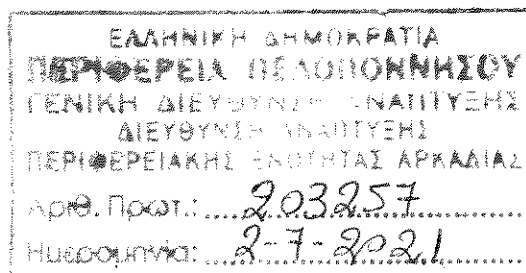 ΕΛΛΗΝΙΚΗ ΔΗΜΟΚΡΑΤΙΑ
ΠΕΡΙΦΕΡΕΙΑ ΠΕΛΟΠΟΝΝΗΣΟΥ
ΓΕΝΙΚΗ ΔΙΕΥΘΥΝΣΗ ΑΝΑΠΤΥΞΗΣ
ΔΙΕΥΘΥΝΣΗ ΑΝΑΠΤΥΞΗΣ
ΠΕΡΙΦΕΡΕΙΑΚΗΣ ΕΝΟΤΗΤΑΣ ΑΡΚΑΔΙΑΣ
Αριθ. Πρωτ.: 203257
Ημερομηνία: 2-7-2021